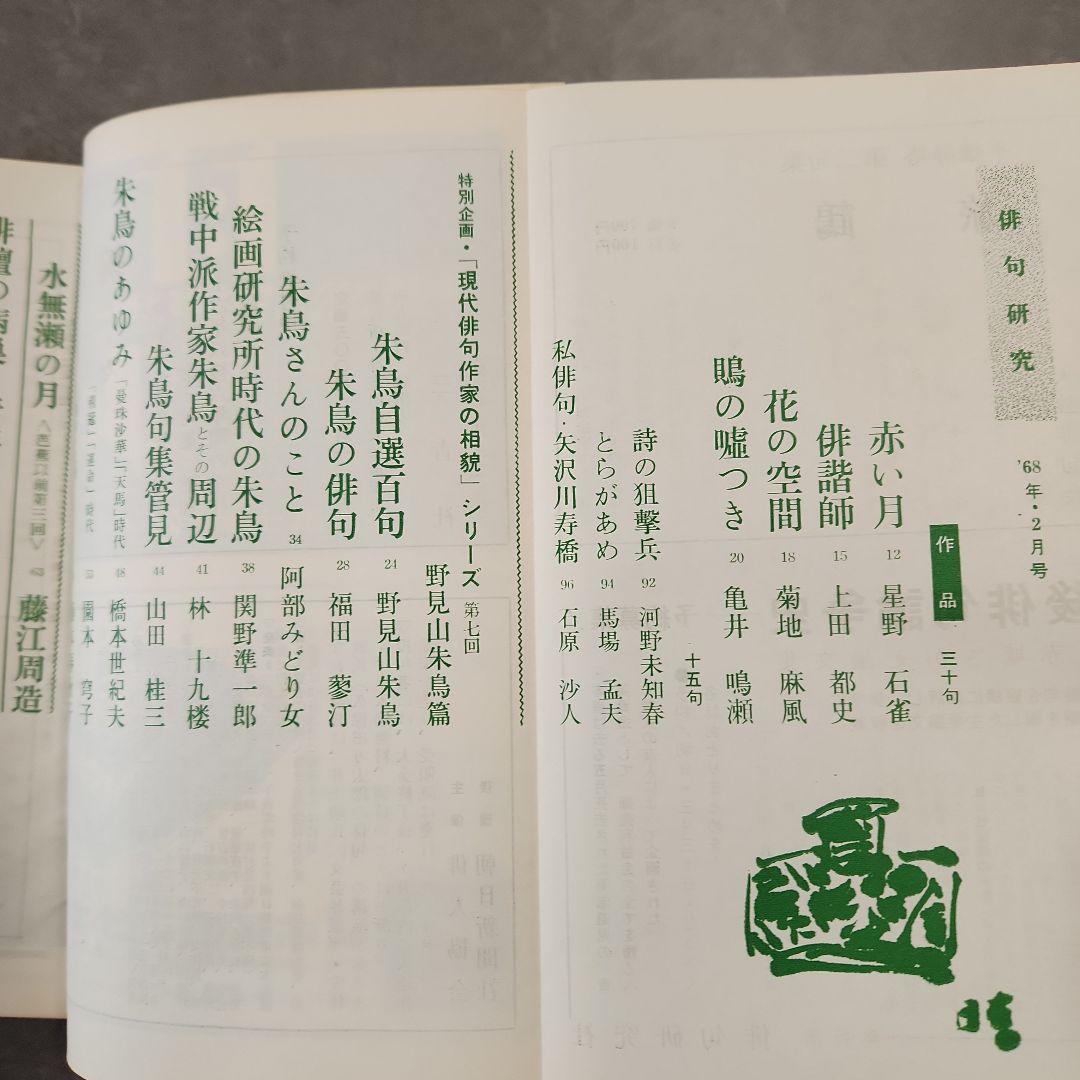 俳句研究
'68年・2月号
作品 三十句
赤い月 12 星野 石雀
俳諧師 15 上田 都史
花の空間 18 菊地 麻風
鴫の嘘つき 20 亀井 鳴瀬
十五句
詩の狙撃兵 92 河野未知春
とらがあめ 94 馬場 孟夫
私俳句・矢沢川寿橋 96 石原 沙人
特別企画・「現代俳句作家の相貌」シリーズ 第七回
野見山朱鳥篇
朱鳥自選百句 24 野見山朱鳥
朱鳥の俳句 28 福田 蓼汀
朱鳥さんのこと 34 阿部みどり女
絵画研究所時代の朱鳥 38 関野準一郎
戦中派作家朱鳥とその周辺 41 林 十九楼
朱鳥句集管見 44 山田 桂三
朱鳥のあゆみ 「曼珠沙華」「天馬」時代 48 橋本世紀夫
時代 53 園本 穹子
水無瀬の月 〈芭蕉以前第三回〉 63 藤江周造